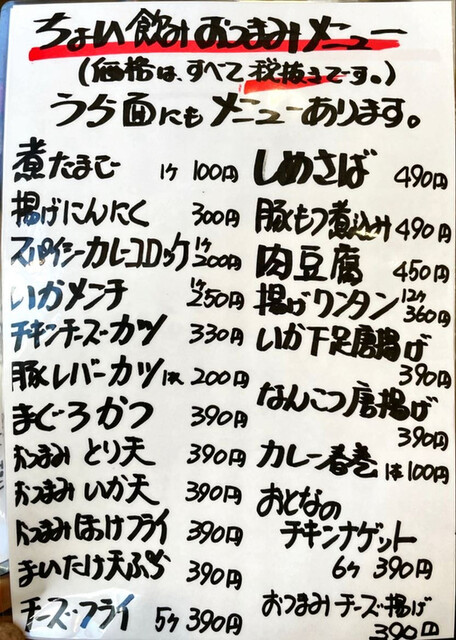 ちょい飲みおつまみメニュー
(価格は、すべて税抜きです。)
うら面にもメニューあります。
煮たまご 1ケ 100円
揚げにんにく 300円
スパイシーカレーコロッケ 1ケ 200円
いかメンチ 1ケ 250円
チキンチーズカツ 330円
豚レバーカツ 1本 200円
まぐろかつ 390円
おつまみ とり天 390円
おつまみ いか天 390円
おつまみ ほっけフライ 390円
まいたけ天ぷら 390円
チーズフライ 5ケ 390円
しめさば 490円
豚もつ煮込み 490円
肉豆腐 450円
揚げワンタン 12ケ 360円
いか下足唐揚げ
390円
なんこつ唐揚げ
390円
カレー春巻 1本 100円
おとなの
チキンナゲット
6ケ 390円
おつまみチーズ揚げ
390円